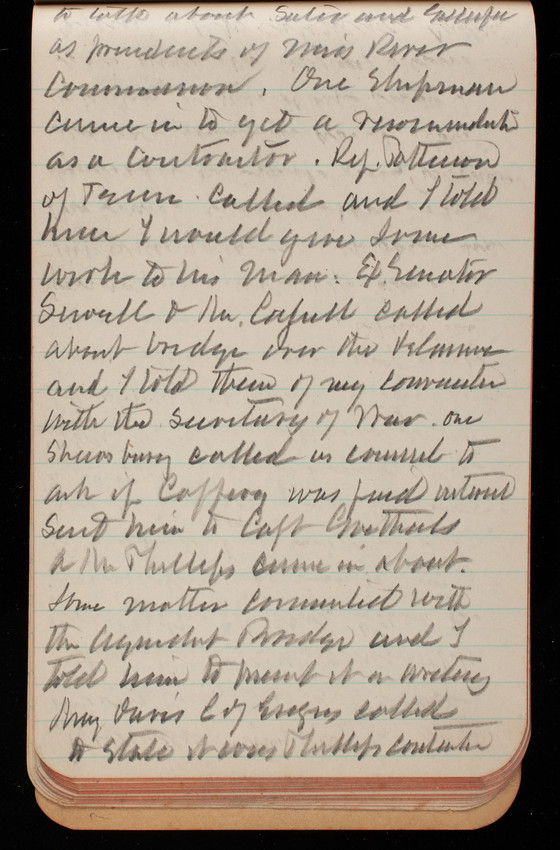 to talk about Suter and Gillespie
as presidents of Miss River
Commission. One Shipman
came in to get a recommendate
as a Contractor. Rep. Patterson
of Tenn called and I told
him I would give some
work to his man. Ex. Senator
Sewell & Mr. called
about bridge over the Delaware
and I told them of my
with the Secretary of War. one
Shrewsbury called as counsel to
ask if was paid interest
Sent him to Capt Goethals
A Mr Phillips came in about
some matter connected with
the Aqueduct Bridge and I
told him to present it in writing
Davis C of Engrs called
to state it was Phillips